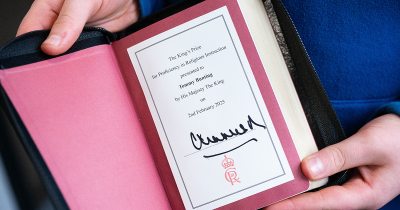 The King's Prize
for Proficiency in Religious Instruction
presented to
Tommy Bunting
by His Majesty The King
on
2nd February 2025
Charles R
CR